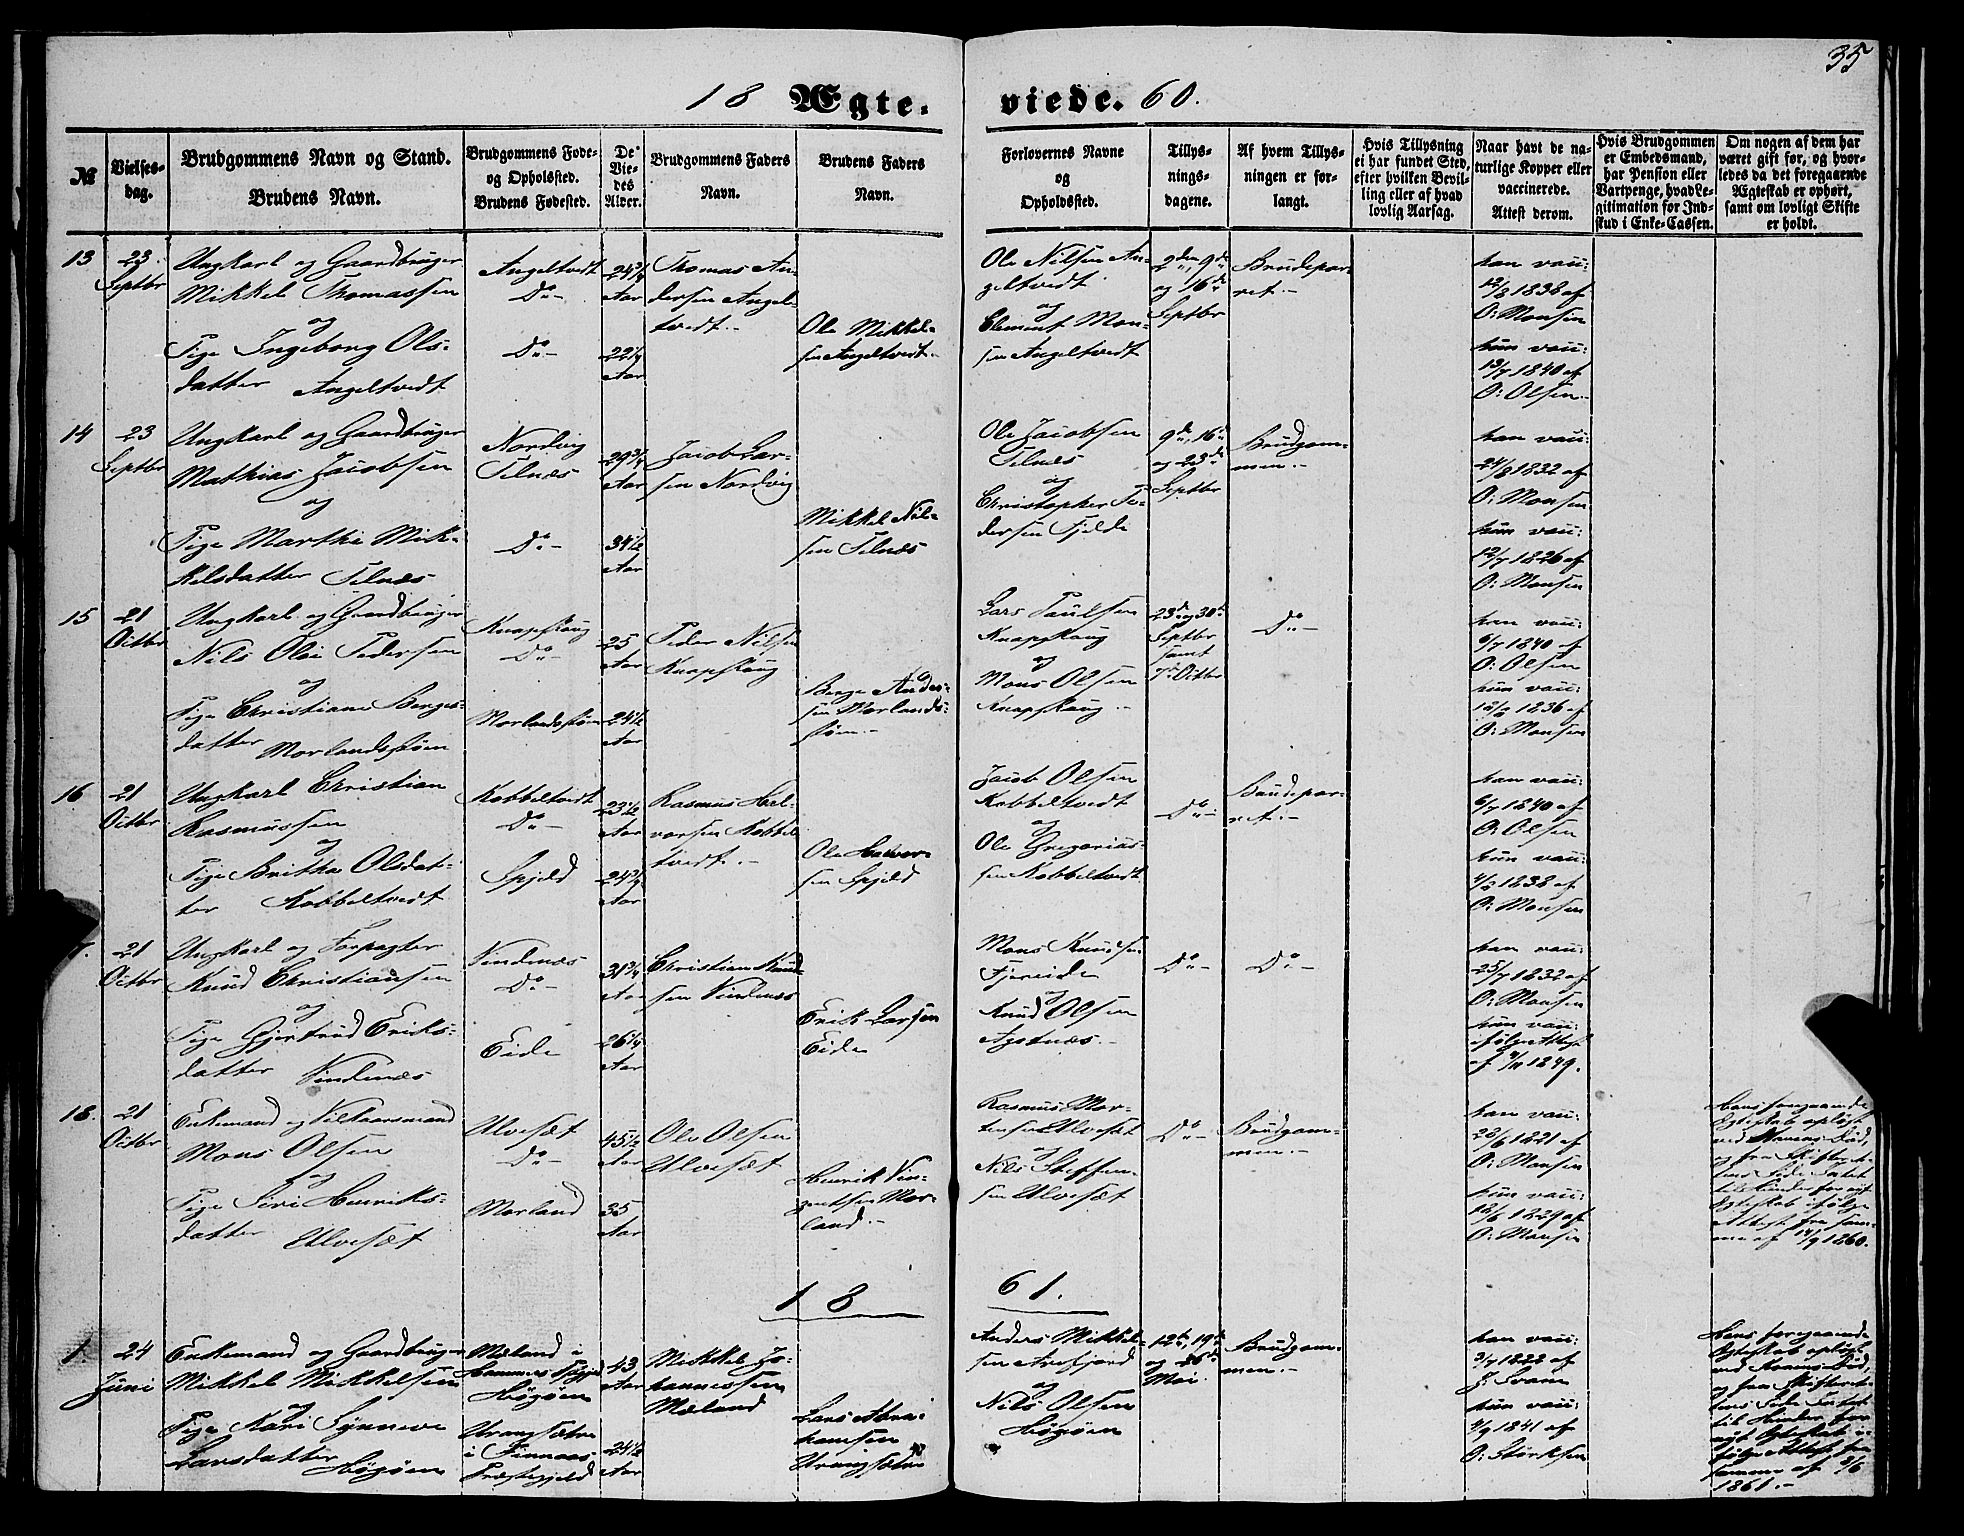 35
18 Ægte. viede. 60.
№
Vielses-
dag.
Brudgommens Navn og Stand.
Brudens Navn.
Brudgommens Føde-
og Opholdssted.
Brudens Fødested.
De
Vie-
des
Alder.
Brudgommens Faders
Navn.
Brudens Faders
Navn.
Forlovernes Navne
og
Opholdssted.
Tillys-
nings-
dagene.
Af hvem Tillys-
ningen er for-
langt.
Hvis Tillysning
ei har fundet Sted,
efter hvilken Bevil-
ling eller af hvad
lovlig Aarsag.
Naar havt de na-
turlige Kopper eller
vaccinerede.
Attest derom.
Hvis Brudgommen
er Embedsmand,
har Pension eller
Vartpenge, hvad Le-
gitimation for Ind-
skud i Enke-Cassen.
Om nogen af dem har
været gift før, og hvor-
ledes da det foregaaende
Ægteskab er ophørt,
samt om lovligt Skifte
er holdt.
13
23
Septbr
Ungkarl og Gaardbruger
Mikkel Thomassen
og
Pige Ingeborg Ols-
datter Angeltvedt
Angeltvedt
Do -
Do -
24 3/4
Aar
22 1/4
Aar
Thomas An-
dersen Angel-
tvedt.-
Ole Mikkel-
sen Angeltvedt.-
Ole Nilsen An-
geltvedt
og
Clement Mon-
sen Angeltvedt
2den, 9de
og 16de
Septbr
Brudepar-
ret.-
han vacc:
12/8 1838 af
O: Monsen
hun vacc:
13/7 1840 af
O: Olsen.-
14
23
Septbr
Ungkarl og Gaardbruger
Mathias Jacobsen
og
Pige Marthe Mik-
kelsdatter Telnæs
Nordvig
Telnæs
Do -
29 3/4
Aar
34 1/2
Aar
Jacob Lar-
sen Nordvig
Mikkel Nil-
sen Telnæs
Ole Jacobsen
Telnæs
og
Christopher Pe-
dersen Fjelde
9de, 16de
og 23de
Septbr
Brudgom-
men.-
han vacc:
24/8 1832 af
O: Monsen
hun vacc:
12/7 1826 af
O: Monsen
15
21
Octbr
Ungkarl og Gaardbruger
Nils Olai Pedersen
og
Pige Christiane Børges-
datter Morlandsstøen
Knapskoug
Do -
Morlandsstøen
25
Aar
24 1/2
Aar
Peder Nilsen
Knapskoug
Børge Ander-
sen Morlands-
støen.-
Lars Paulsen
Knapskoug
og
Mons Olsen
Knapskoug.-
23de og 30te
Septbr
samt
7de Octbr
Do -
han vacc:
6/7 1840 af
O: Olsen
hun vacc:
12/8 1836 af
O: Monsen
16
21
Octbr
Ungkarl Christian
Rasmussen
og
Pige Britha Olsdat-
ter Kobbeltvedt
Kobbeltvedt
Do -
Spjeld
23 1/2
Aar
24 3/4
Aar
Rasmus Hal-
vorsen Kobbel-
tvedt.-
Ole Halvor-
sen Spjeld
Jacob Olsen
Kobbeltvedt
og
Ole Gregorius-
sen Kobbeltvedt
Do -
Brudepar-
ret.-
han vacc:
6/7 1840 af
O: Olsen
hun vacc:
4/8 1838 af
O: Monsen
7.
21
Octbr
Ungkarl og Forpagter
Knud Christiansen
og
Pige Gjertrud Eriks-
datter Vindenæs
Vindenæs
Do -
Eide
31 3/4
Aar
26 1/4
Aar
Christian Knud-
sen Vindenæs
Erik Larsen
Eide
Mons Knudsen
Fjereide
og
Knud Olsen
Agotnæs.-
Do -
Do -
han vacc:
25/7 1832 af
O: Monsen
hun vacc:
ifølge Attest
af 4/11 1849.
18.
21
Octbr
Enkemand og Vilkaarsmand
Mons Olsen
og
Pige Siri Henriks-
datter Ulvesæt
Ulvesæt
Do -
Morland
45 1/2
Aar
35
Aar
Ole Olsen
Ulvesæt
Henrik Vin-
gentsen Mor-
land.-
Rasmus Mor-
tensen Ulvesæt
og
Nils Steffen-
sen Ulvesæt
Do -
Brudgom-
men.-
han vacc:
28/6 1821 af
O: Monsen
hun vacc:
12/6 1829 af
O: Monsen
Hans foregaaende
Egteskab opløst
ved Konens Død,
og fra Skifteret-
tens Side Intet
til Hinder for nyt
Egteskab ifølge
Attest fra sam-
me af 14/9 1860.
18 61.
1
24
Juni
Enkemand og Gaardbruger
Mikkel Mikkelsen
og
Pige Kari Synneve
Larsdatter Høgøen
Mæland i
Hammers Pgjeld
Høgøen
Urangsætre
i Finnaas
Præstegjeld
43
Aar
24 1/2
Aar
Mikkel Jo-
hannessen
Mæland
Lars Abra-
hamsen
Urangsætre
Anders Mikkel-
sen Arefjord
og
Nils Olsen
Høgøen
12te, 19de
og 26de
Mai.
Brudgom-
men.-
han vacc:
3/7 1822 af
J. Svane
hun vacc:
4/9 1841 af
O: Størksen
Hans foregaaende
Egteskab opløst
ved Konens Død,
og fra Skifteret-
tens Side Intet
til Hinder for
nyt Egteskab i-
følge Attest fra
samme af 8/6
1861.-